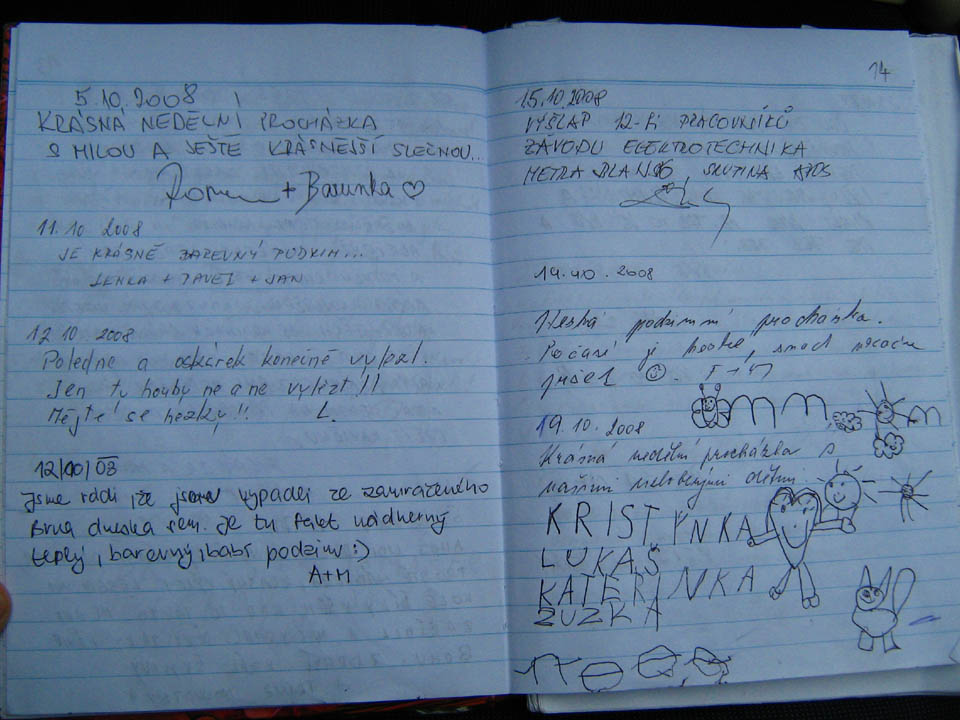 5.10.2008
KRÁSNÁ NEDĚLNÍ PROCHÁZKA
S MILOU A JEŠTĚ KRÁSNĚJŠÍ SLEČNOU..
+ Barunka ♡
11.10 2008
JE KRÁSNĚ BAREVNÝ PODZIM...
LENKA + PAVEL + JAN
12 10 2008
Poledne a opárek konečně vylezl.
Jen ty houby ne a ne vylézt!!
Mějte se hezky!! L.
12/10/08
Jsme rádi, že jsme vypadli ze zamraženého
Brna dneska sem. Je tu fakt nádherný
teplý, barevný, babí podzim :)
A+M
14
15.10.2008
VÝŠLAP 12-ti PRACOVNÍKŮ
ZÁVODU ELEKTROTECHNIKA
METRA BLANSKO, SKUPINA
19.10.2008
Hezká podzimní procházka.
Počasí je hezké,
19.10.2008
Krásná nedělní procházka s
našimi dětmi.
KRISTÝNKA
LUKÁŠ
KATEŘINKA
ZUZKA